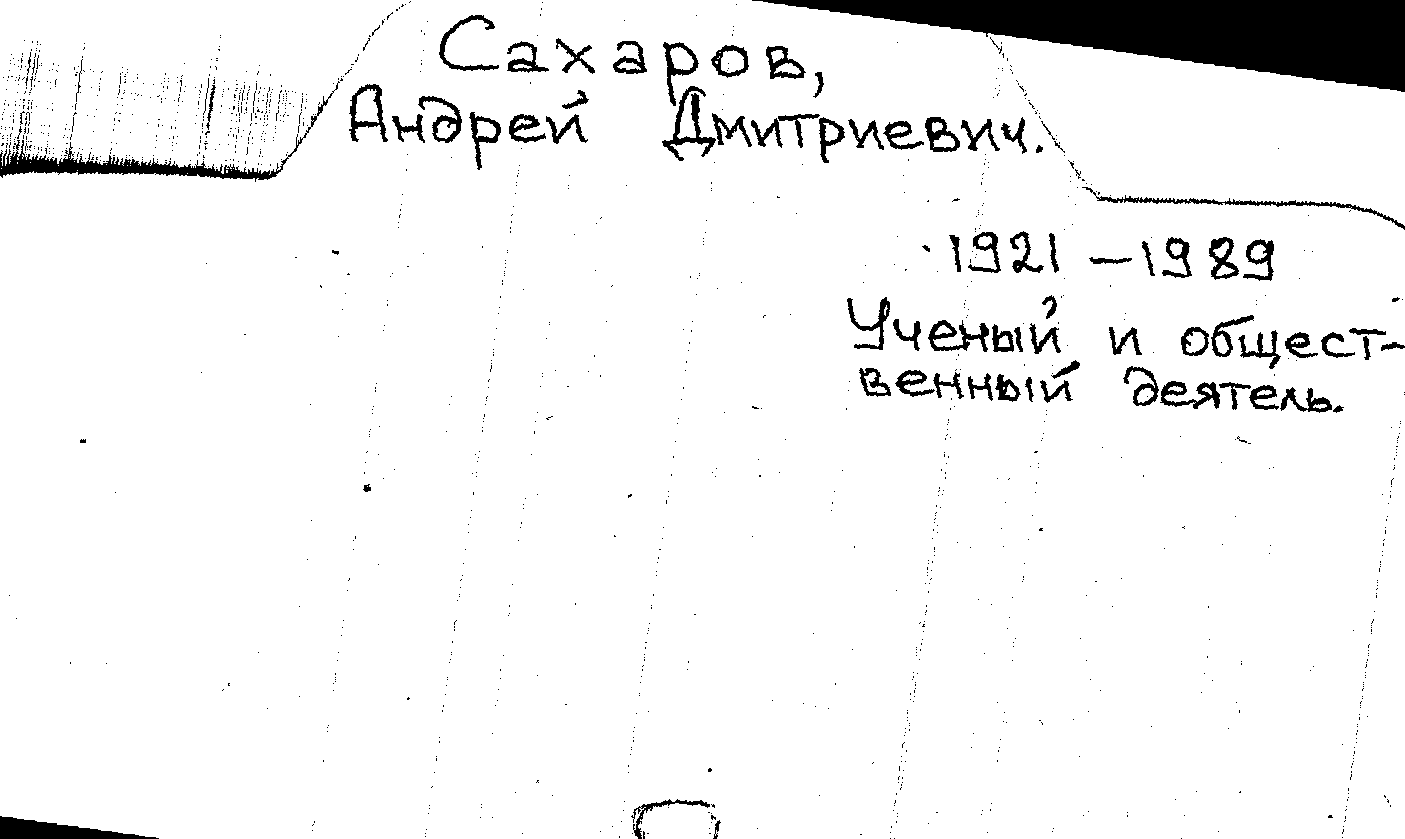 Сахаров,
Андрей Дмитриевич.
1921 – 1989
Ученый и общест-
венный деятель.